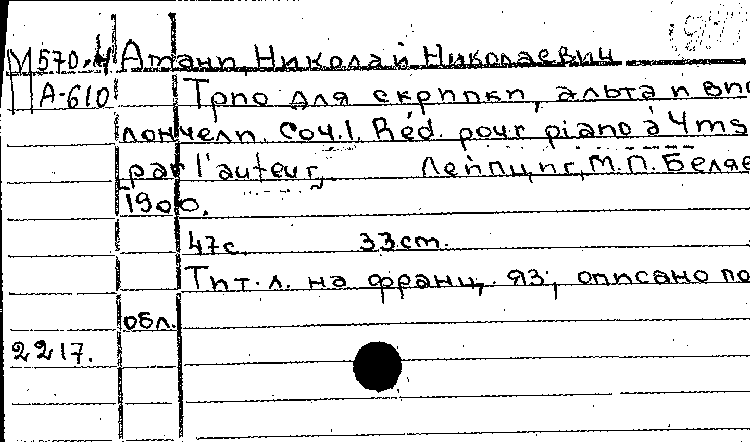 М 570.4 Атани, Николай Николаевич
А-610 Трио для скрипки, альта и вио
лончели. Соч.1. Réd. pour piano à 4 ms
par l'auteur, Лейпциг, М.П. Беляе
1900.
47с. 33см.
Тит.л. на франц. яз., описано по
обл.
2217.